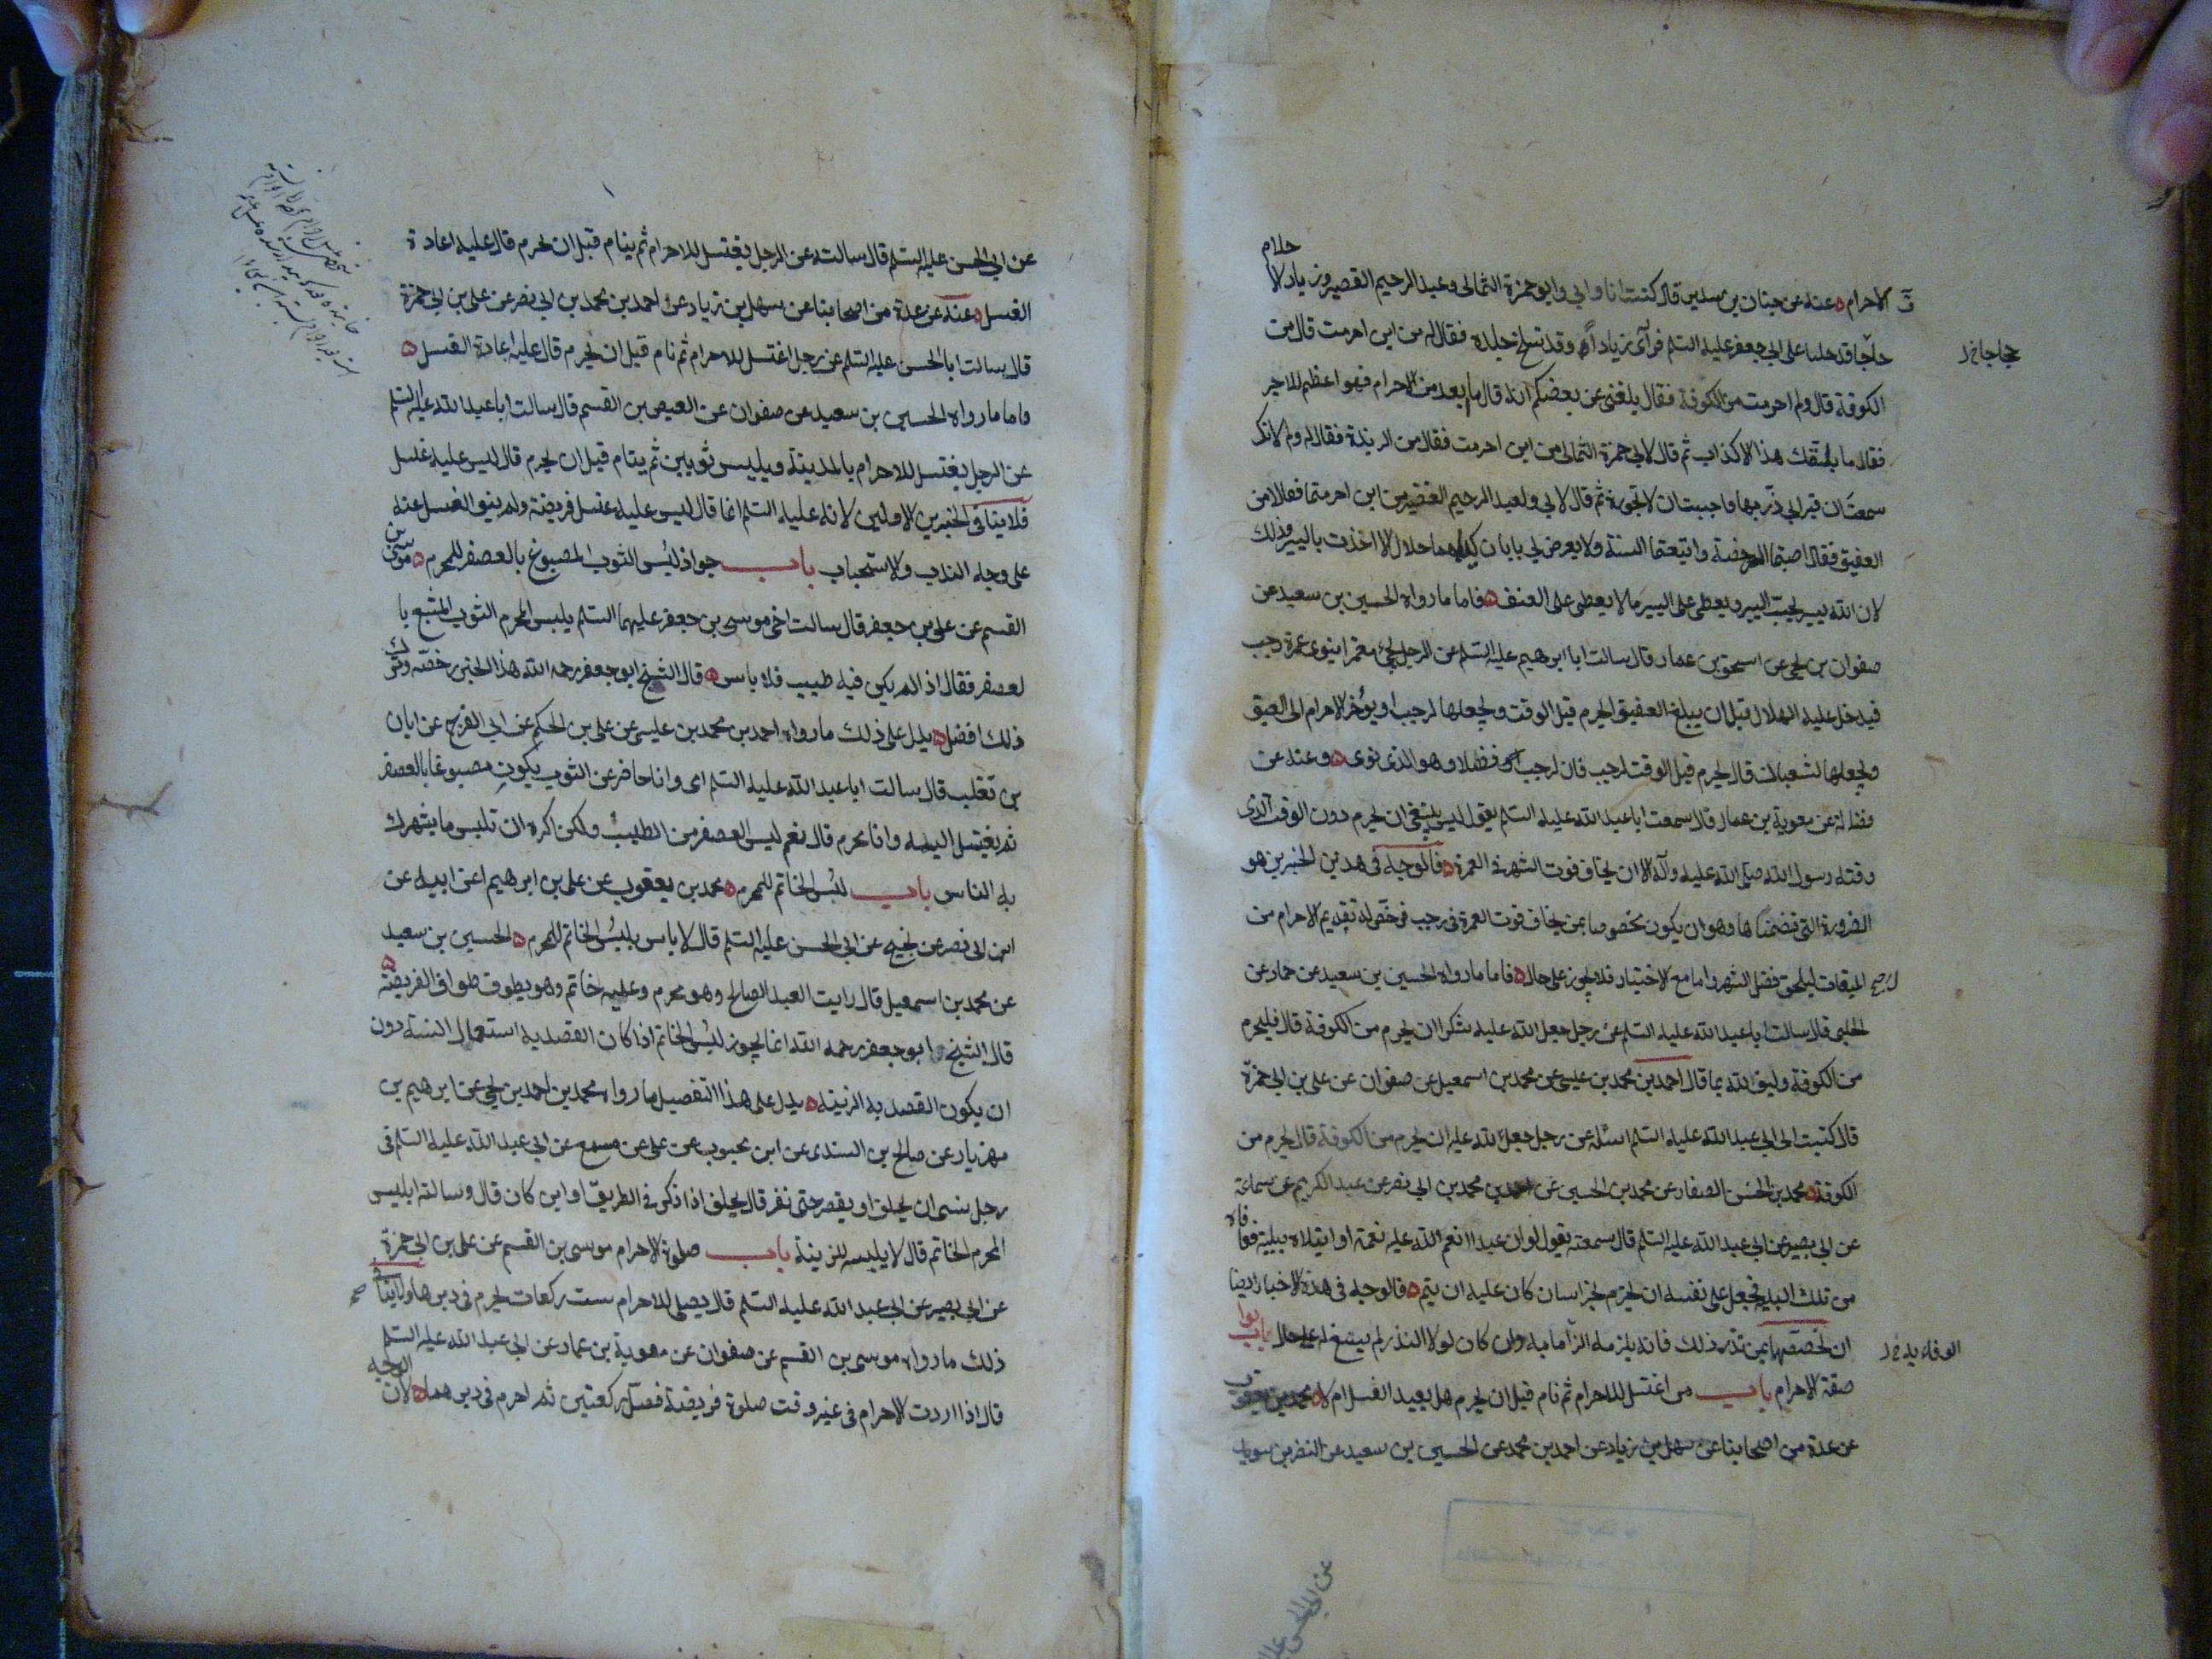 الاحرام عنه عن حنان بن سدير قال كنت انا وابي وابو حمزة الثمالي وعبد الرحيم القصير وزياد الاحلام
حاجا فدخلنا على ابي جعفر عليه السلم فرآى زيادا وقد تسلخ جلده فقال له من اين احرمت قال من
حجاجا خ ل
الكوفة قال ولم احرمت من الكوفة فقال بلغني عن بعضكم انه قال ما بعد من الاحرام فهو اعظم للاجر
فقال ما بلغك هذا الا كذاب ثم قال لابي حمزة الثمالي من اين احرمت فقال من الربذة فقال له ولم لانك
سمعت ان قبر ابي ذر بها واحببت ان لا تجوزه ثم قال لابي ولعبد الرحيم القصير من اين احرمتما فقالا من
العقيق فقال اصبتما الرخصة واتبعتما السنة ولا يعرض لي بابان كلاهما حلال الا اخذت باليسير وذلك
لان الله يسير يحب اليسير ويعطي على اليسير ما لا يعطي على العنف فاما ما رواه الحسين بن سعيد عن
صفوان بن يحيى عن اسحق بن عمار قال سالت ابا ابرهيم عليه السلم عن الرجل يجئ معتمرا ينوي عمرة رجب
فيدخل عليه الهلال قبل ان يبلغ العقيق ايحرم قبل الوقت ويجعلها لرجب او يؤخر الاحرام الى العقيق
ويجعلها لشعبان قال يحرم قبل الوقت لرجب فان لرجب فضلا وهو الذي نوى وعنه عن
فضالة عن معوية بن عمار قال سمعت ابا عبد الله عليه السلم يقول ليس ينبغي ان يحرم دون الوقت الذي
وقته رسول الله صلى الله عليه وآله الا ان يخاف فوت الشهر في العمرة فالوجه في هذين الخبرين هو
الضرورة التي تضمناها وهو ان يكون مخصوصا بمن يخاف فوت العمرة في رجب فرخص له تقديم الاحرام من
الميقات ليلحق فضل الشهر واما مع الاختيار فلا يجوز على حال فاما ما رواه الحسين بن سعيد عن حماد عن
الحلبي قال سالت ابا عبد الله عليه السلم عن رجل جعل الله عليه شكرا ان يحرم من الكوفة قال فليحرم
من الكوفة وليف لله بما قال احمد بن محمد بن عيسى عن محمد بن اسمعيل عن صفوان عن علي بن ابي حمزة
قال كتبت الى ابي عبد الله عليه السلم اسئله عن رجل جعل لله عليه ان يحرم من الكوفة قال يحرم من
الكوفة محمد بن الحسن الصفار عن محمد بن الحسين عن احمد بن محمد بن ابي نصر عن عبد الكريم عن سماعة
عن ابي بصير عن ابي عبد الله عليه السلم قال سمعته يقول لو ان عبدا انعم الله عليه نعمة او ابتلاه ببلية فعافاه
من تلك البلية فجعل على نفسه ان يحرم بخراسان كان عليه ان يتم فالوجه في هذه الاخبار ايضا
ان نخصصها بمن نذر ذلك فانه يلزمه الزاما به وان كان لولا النذر لم ينبغ له على حال ابواب
الوفاء به خ ل
صفة الاحرام باب من اغتسل للاحرام ثم نام قبل ان يحرم هل يعيد الغسل ام لا محمد بن يعقوب
عن عدة من اصحابنا عن سهل بن زياد عن احمد بن محمد عن الحسين بن سعيد عن النضر بن سويد
عن ابي الحسن
عن ابي الحسن عليه السلم قال سالته عن الرجل يغتسل للاحرام ثم ينام قبل ان يحرم قال عليه اعادة
الغسل عنه عن عدة من اصحابنا عن سهل بن زياد عن احمد بن محمد بن ابي نصر عن علي بن ابي حمزة
قال سالت ابا الحسن عليه السلم عن رجل اغتسل للاحرام ثم نام قبل ان يحرم قال عليه اعادة الغسل
واما ما رواه الحسين بن سعيد عن صفوان عن العيص بن القسم قال سالت ابا عبد الله عليه السلم
عن الرجل يغتسل للاحرام بالمدينة ويلبس ثوبين ثم ينام قبل ان يحرم قال ليس عليه غسل
فلا ينافي الخبرين الاولين لانه عليه السلم انما قال ليس عليه غسل فريضة ولم ينو الغسل عنه
على وجه الندب والاستحباب باب جواز لبس الثوب المصبوغ بالعصفر للمحرم موسى بن
القسم عن علي بن جعفر قال سالت اخي موسى بن جعفر عليهما السلم يلبس المحرم الثوب المشبع با
لعصفر فقال اذا لم يكن فيه طيب فلا باس قال الشيخ ابو جعفر رحمه الله هذا الخبر رخصة وترك
ذلك افضل يدل على ذلك ما رواه احمد بن محمد بن عيسى عن علي بن الحكم عن ابي الفرج عن ابان
بن تغلب قال سالت ابا عبد الله عليه السلم اي وانا حاضر عن الثوب يكون مصبوغا بالعصفر
ثم يغسل البسه وانا محرم قال نعم ليس العصفر من الطيب ولكن اكره ان تلبس ما يشهرك
به الناس باب لبس الخاتم للمحرم محمد بن يعقوب عن علي بن ابرهيم عن ابيه عن
ابن ابي نصر عن نجيح عن ابي الحسن عليه السلم قال لا باس بلبس الخاتم للمحرم الحسين بن سعيد
عن محمد بن اسمعيل قال رايت العبد الصالح وهو محرم وعليه خاتم وهو يطوف طواف الفريضة
قال الشيخ ابو جعفر رحمه الله انما يجوز لبس الخاتم اذا كان القصد به استعمال السنة دون
ان يكون القصد به الزينة يدل على هذا التفصيل ما رواه محمد بن احمد بن يحيى عن ابرهيم بن
مهزيار عن صالح بن السندي عن ابن محبوب عن علي عن مسمع عن ابي عبد الله عليه السلم في
رجل نسي ان يحلق او يقصر حتى نفر قال يحلق اذا ذكر في الطريق او اين كان قال وسالته ايلبس
المحرم الخاتم قال لا يلبسه للزينة باب صلوة الاحرام موسى بن القسم عن علي بن ابي حمزة
عن ابي بصير عن ابي عبد الله عليه السلم قال يصلي للاحرام ست ركعات يحرم في دبرها ولا ينافي
ذلك ما رواه موسى بن القسم عن صفوان عن معوية بن عمار عن ابي عبد الله عليه السلم
قال اذا اردت الاحرام في غير وقت صلوة فريضة فصل ركعتين ثم احرم في دبرهما لان الوجه